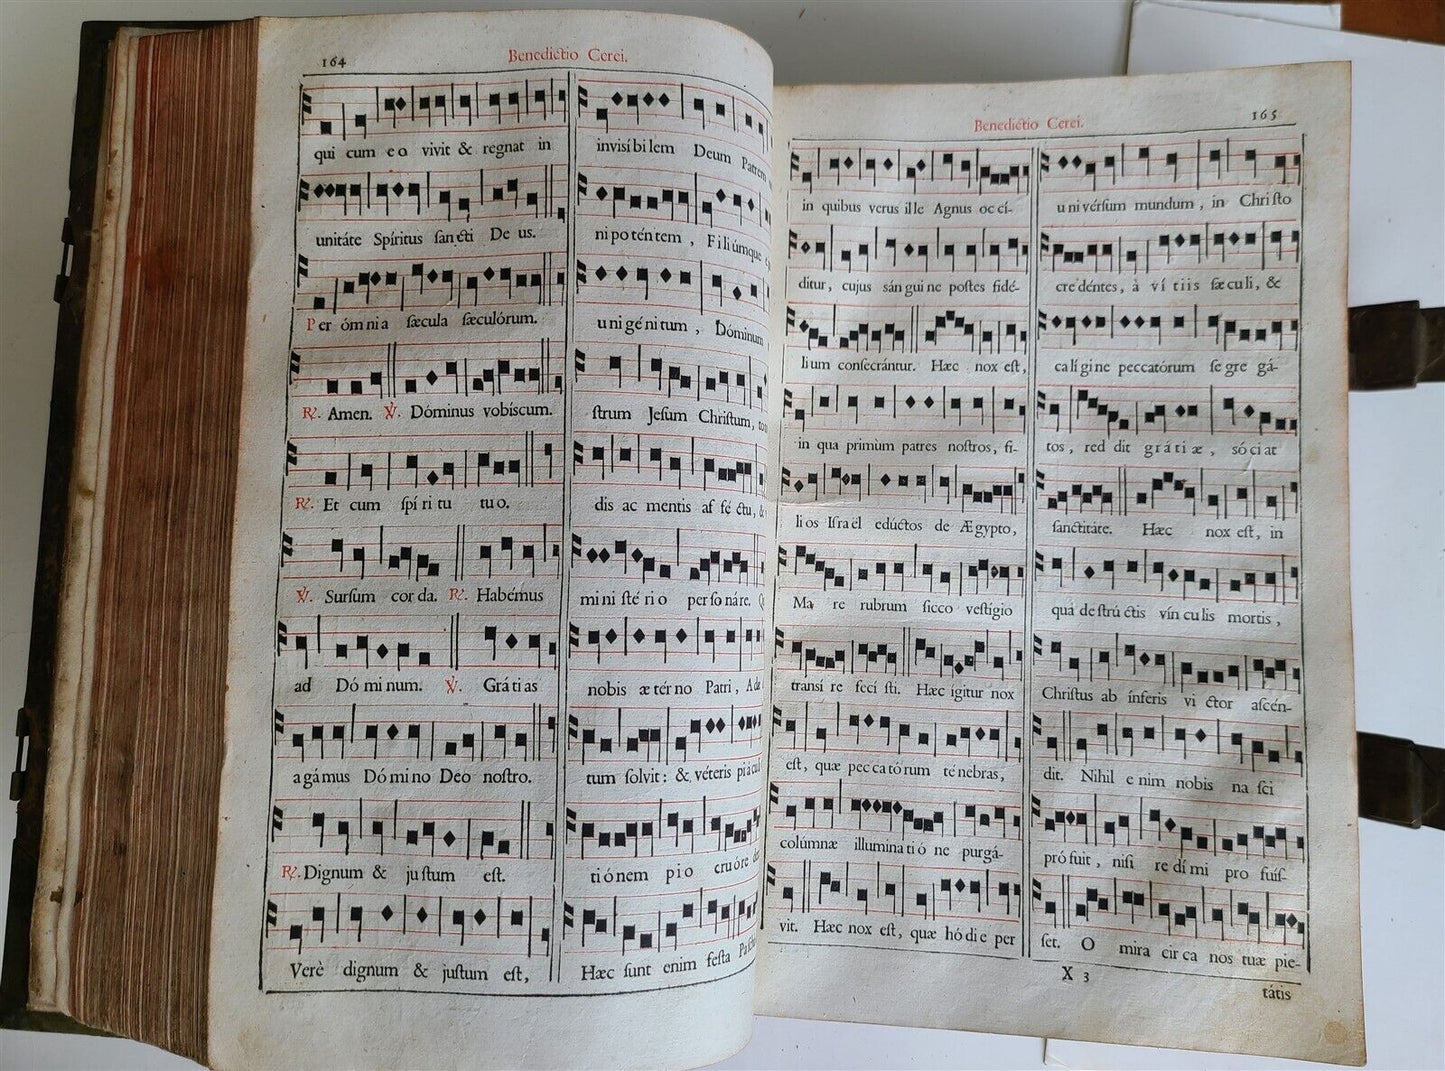 164
Benedictio Cerei.
qui cum eo vivit & regnat in
unitáte Spíritus sancti Deus.
Per ómnia sæcula sæculórum.
℟. Amen. ℣. Dóminus vobíscum.
℟. Et cum spíritu tuo.
℣. Sursum corda. ℟. Habémus
ad Dóminum. ℣. Grátias
agámus Dómino Deo nostro.
℟. Dignum & justum est.
Verè dignum & justum est,
invisíbilem Deum Patrem
nipoténtem, Filiúmque
unigénitum, Dóminum
strum Jesum Christum,
dis ac mentis afféctu,
ministério personáre.
nobis ætérno Patri,
tum solvit: & véteris
tiónem pio cruóre
Hæc sunt enim festa
Benedictio Cerei.
165
in quibus verus ille Agnus occí-
ditur, cujus sánguine postes fidé-
lium consecrántur. Hæc nox est,
in qua primùm patres nostros, fi-
lios Israël edúctos de Ægypto,
Mare rubrum sicco vestígio
transíre fecísti. Hæc igitur nox
est, quæ peccatórum ténebras,
colúmnæ illuminatióne purgá-
vit. Hæc nox est, quæ hódie per
univérsum mundum, in Christo
credéntes, à vítiis sæculi, &
calígine peccatórum segregá-
tos, reddit grátiæ, sóciat
sanctitáte. Hæc nox est, in
quá destrúctis vínculis mortis,
Christus ab ínferis victor ascén-
dit. Nihil enim nobis nasci
prófuit, nisi rédími profuís-
set. O mira circa nos tuæ pie-
X 3
tátis